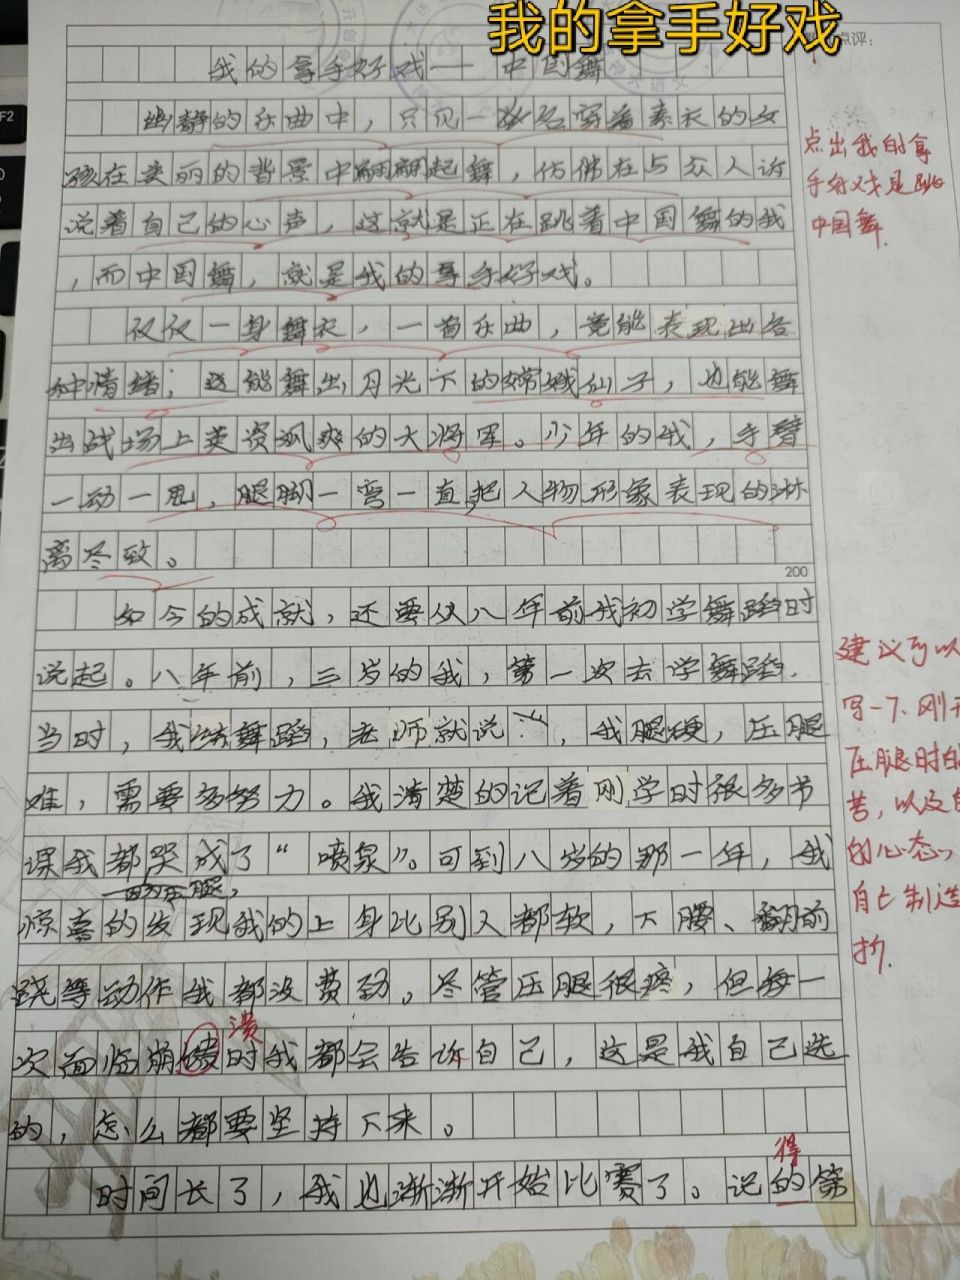 我的拿手好戏
点评:
我的拿手好戏——中国舞
幽静的乐曲中，只见一名穿着素衣的女
孩在美丽的背景中翩翩起舞，仿佛在与众人诉
说着自己的心声，这就是正在跳着中国舞的我
，而中国舞，就是我的拿手好戏。
仅仅一身舞衣，一首乐曲，竟能表现出各
种情绪；既能舞出月光下的嫦娥仙子，也能舞
出战场上英姿飒爽的大将军。少年的我，手臂
一动一甩，腿脚一弯一直，把人物形象表现的淋
离尽致。
200
如今的成就，还要从八年前我初学舞蹈时
说起。八年前，三岁的我，第一次去学舞蹈.
当时，我练舞蹈，老师就说，我腿硬，压腿
难，需要多努力。我清楚的记着刚学时很多节
课我都哭成了“喷泉”。可到八岁的那一年，我
因为压腿，
惊喜的发现我的上身比别人都软，下腰、翻前
跷等动作我都没费劲。尽管压腿很疼，但每一
溃
次面临崩时我都会告诉自己，这是我自己选
的，怎么都要坚持下来。
得
时间长了，我也渐渐开始比赛了。记的第
点出我的拿
手好戏是跳
中国舞.
建议可以
写一下.刚开
压腿时的
苦，以及自
的心态，
自己制造
折.
F2